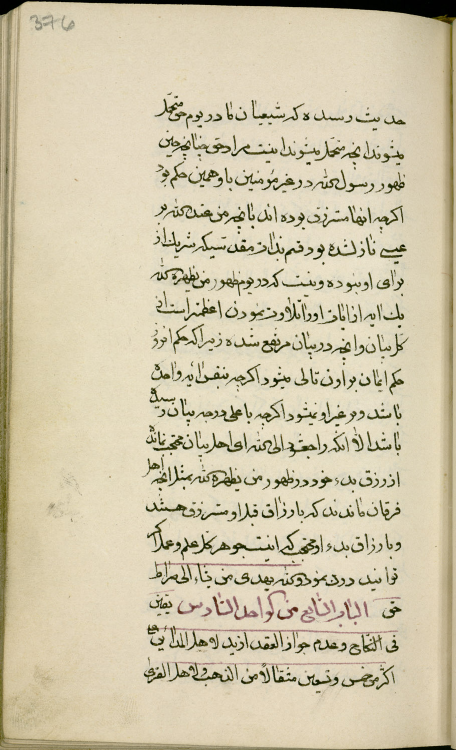 376
حدیث رسیده که شیعیان ما در یوم حق متحمل
میشوند آنچه متحمل میشوند اینست مراد حق چنانچه حین
ظهور رسول الله در غیر مؤمنین باو همین حکم بود
اگرچه آنها مسترزق بوده اند بآنچه من عند الله بر
عیسی نازل شده بود قسم بذات مقدسی که شریک از
برای او نبوده و نیست که در یوم ظهور من یظهره الله
یک آیه از آیات او را تلاوت نمودن اعظمتر است از
کل بیان و آنچه در بیان مرتفع شده زیرا که حکم امروز
حکم ایمان بر اون تالی میشود اگرچه بنفس آیه واحده
باشد و بر غیر او نمیشود اگرچه باعلی درجه بیان رسیده
باشد الا آنکه راجع شود الی الله ای اهل بیان محتجب نمانده
از رزق بدء خود در ظهور من یظهره الله بمثل آنچه اهل
فرقان ماندند که بارزاق قبل او مسترزق هستند
و بارزاق بدء او محتجب اینست جوهر کل علم و عمل اگر
توانید درک نمود و الله یهدی من یشاء الی صراط
حق الباب السابع من الواحد السادس یقین
فی النکاح و عدم جواز العقد ازید لاهل المدائن
اکثر من خمس و تسعین مثقالا من الذهب و لاهل القری